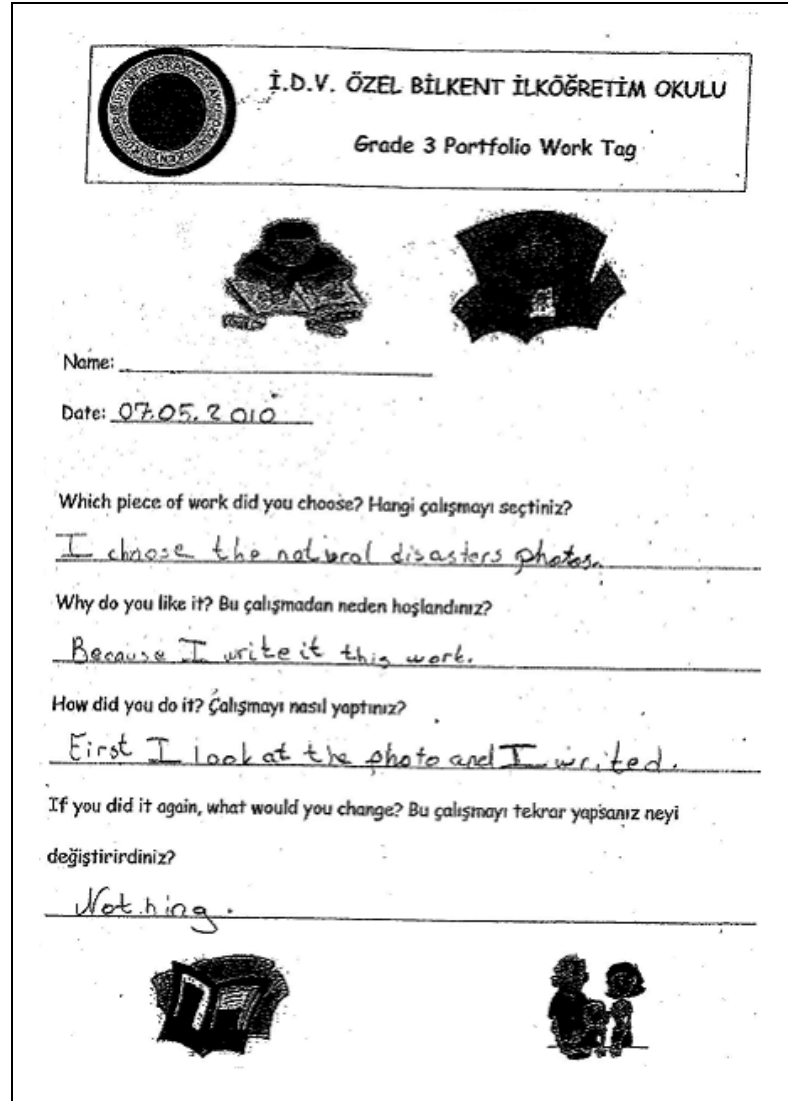 İ.D.V. ÖZEL BİLKENT İLKÖĞRETİM OKULU
Grade 3 Portfolio Work Tag
Name:
Date: 07.05.2010
Which piece of work did you choose? Hangi çalışmayı seçtiniz?
I choose the natural disasters photos.
Why do you like it? Bu çalışmadan neden hoşlandınız?
Because I write it this work.
How did you do it? Çalışmayı nasıl yaptınız?
First I look at the photo and I writed.
If you did it again, what would you change? Bu çalışmayı tekrar yapsanız neyi
değiştirirdiniz?
Nothing.